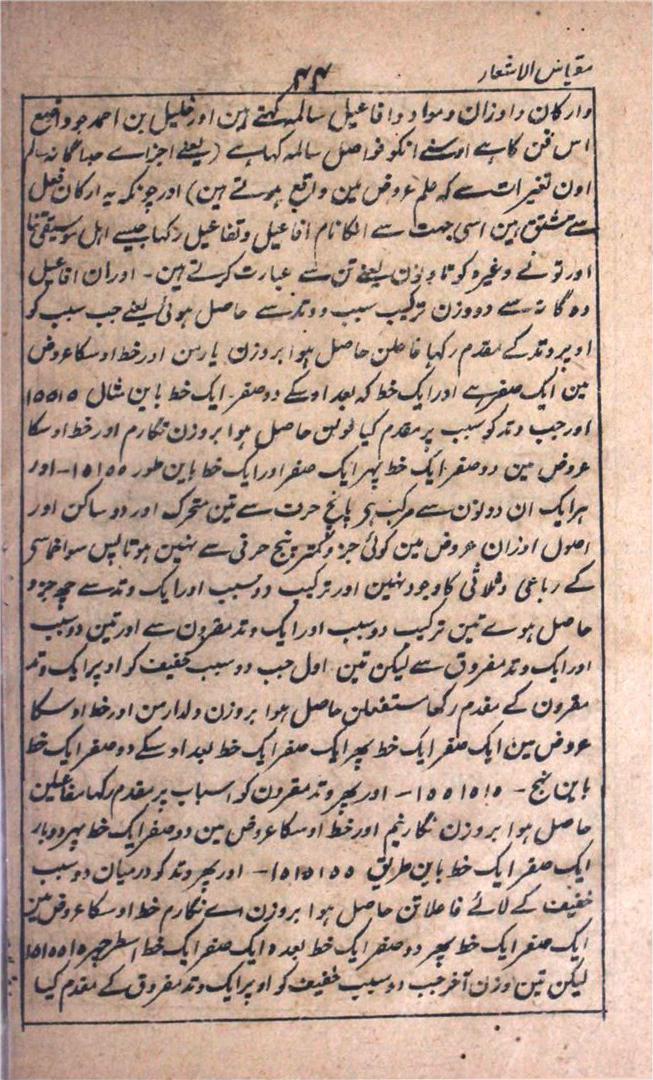 مقیاس الاشعار
۴۴
وارکان واوزان ومواد وافاعیل سالمہ کہتے ہین اور خلیل بن احمد جو واضع
اس فن کا ہے اوسنے انکو فواصل سالمہ کہا ہے (یعنے اجزاے جداگانہ سالم
اون تغیرات سے کہ علم عروض مین واقع ہوتے ہین) اور چونکہ یہ ارکان فعل
سے مشتق ہین اسی جہت سے انکا نام افاعیل وتفاعیل رکھا جیسے اہل موسیقی تنا
اور تونے وغیرہ کو تا ونون یعنے تن سے عبارت کرتے ہین - اور ان افاعیل
دہ گانہ سے دو وزن ترکیب سبب ووتد سے حاصل ہوئی یعنے جب سبب کو
اوپر وتد کے مقدم رکہا فاعلن حاصل ہوا بروزن یارمن اور خط اوسکا عروض
مین ایک صفر ہے اور ایک خط کہ بعد اوسکے دو صفر ۔ ایک خط باین مثال ۱۵۵۱۵
اور جب وتد کو سبب پر مقدم کیا فعولن حاصل ہوا بروزن نگارم اور خط اوسکا
عروض مین دو صفر ایک خط پہر ایک صفر اور ایک خط باین طور ۱۵۱۵۵ - اور
ہر ایک ان دونون سے مرکب ہی پانچ حرف سے تین متحرک اور دو ساکن اور
اصول اوزان عروض مین کوئی جزو کمتر پنج حرفی سے نہین ہوتا پس سواخماسی
کے رباعی وثلاثی کا وجود نہین اور ترکیب دو سبب اور ایک وتد سے چھ جزو
حاصل ہوے تین ترکیب دو سبب اور ایک وتد مقرون سے اور تین دو سبب
اور ایک وتد مفروق سے لیکن تین اول جب دو سبب خفیف کو اوپر ایک وتد
مقرون کے مقدم رکھا مستفعلن حاصل ہوا بروزن ولدار من اور خط اوسکا
عروض مین ایک صفر ایک خط پہر ایک صفر ایک خط بعد اوسکے دو صفر ایک خط
باین نہج - ۱۵۵۱۵۱۵ - اور پہر وتد مقرون کو اسباب پر مقدم رکہا مفاعلین
حاصل ہوا بروزن نگارینم اور خط اوسکا عروض مین دو صفر ایک خط پہر دوبار
ایک صفر ایک خط باین طریق ۱۵۱۵۱۵۵ - اور پہر وتد کو درمیان دو سبب
خفیف کے لائے فاعلاتن حاصل ہوا بروزن اے نگارم خط اوسکا عروض مین
ایک صفر ایک خط پہر دو صفر ایک خط بعدہ ایک صفر ایک خط اسطرحپر ۱۵۱۵۵۱۵
لیکن تین وزن آخر جب دو سبب خفیف کو اوپر ایک وتد مفروق کے مقدم کیا